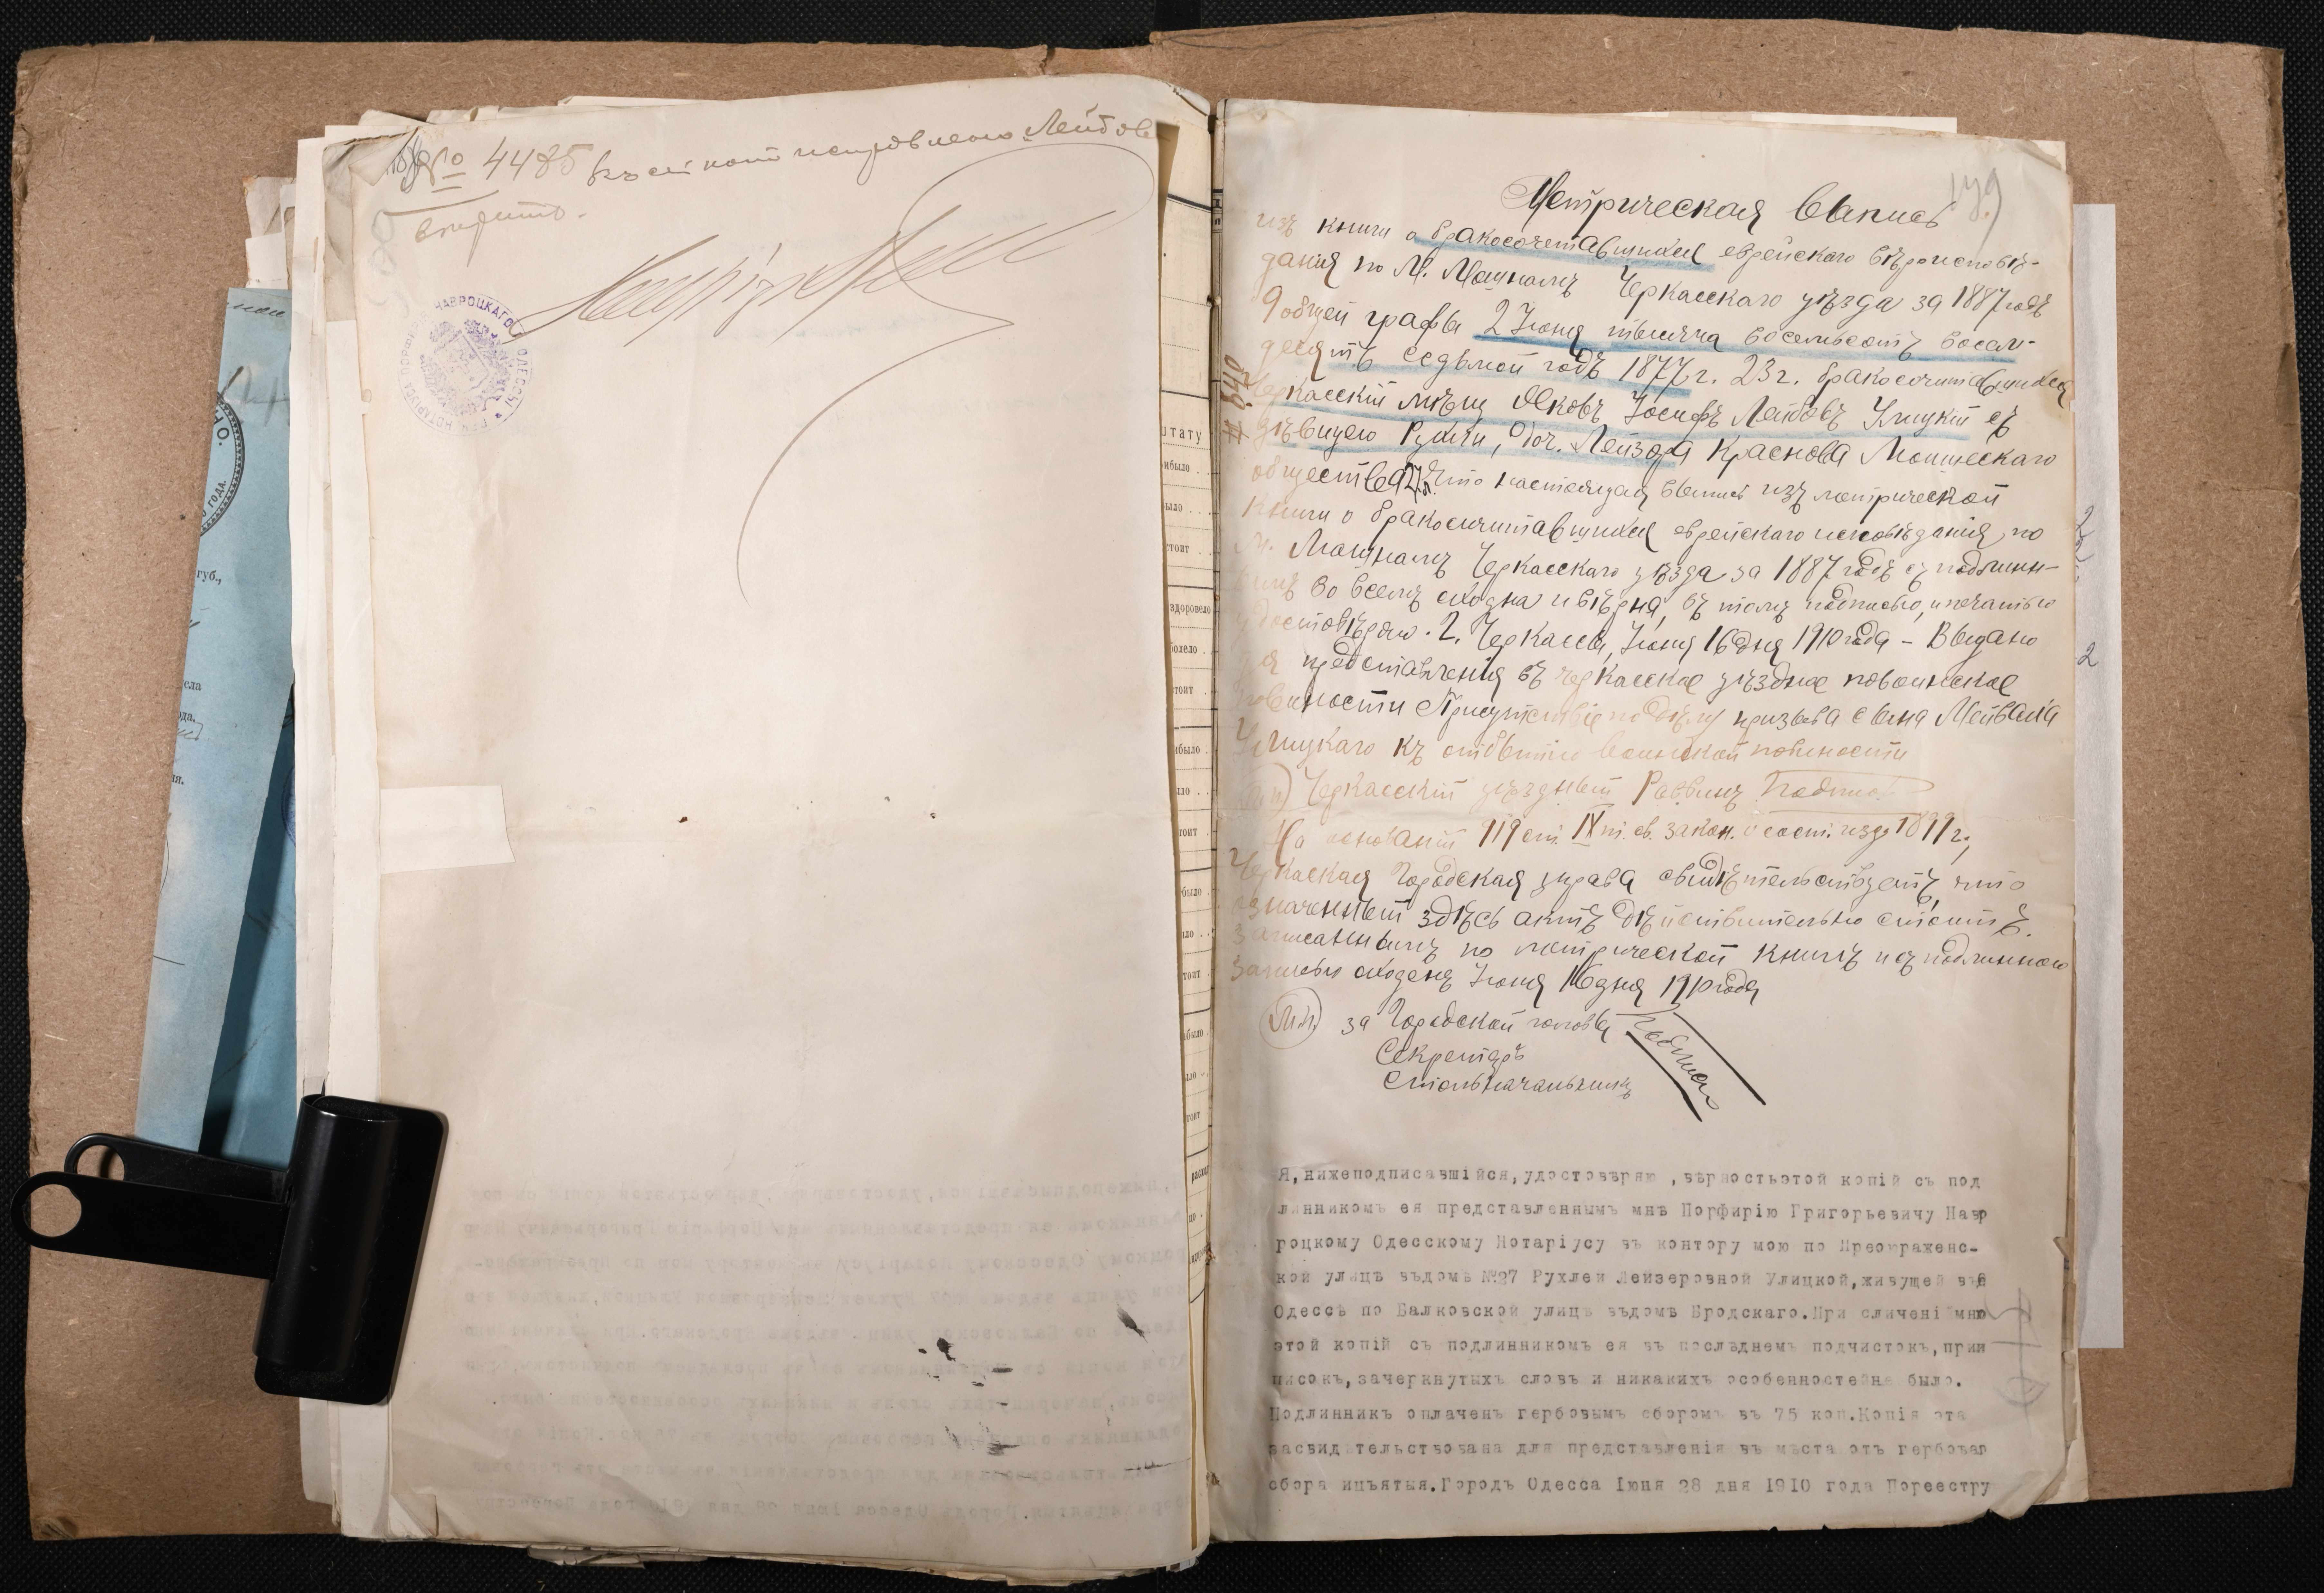 № 4485 исправлено Лейбов
НАВРОЦКАГО
губ.,
ода.
штату
было
стоит
здоровело
болело
Метрическая выпись
изъ книги о бракосочетавшихся еврейскаго вѣроисповѣ-
данія по М. Мошнамъ Черкасскаго уѣзда за 1887 годъ
9 общей графы 2 Іюня тысяча восемьсотъ восем-
десятъ седьмой годъ 1877 г. 23 г. бракосочитавшихся
Черкасскій мѣщ Яковъ Іосифъ Лейбовъ Улицкій съ
дѣвицею Рухли, доч. Лейзора Краснова Мошнескаго
общества, Что настоящая выпись изъ метрической
книги о бракосочитавшихся еврейскаго исповѣданія, по
М. Мошнамъ Черкасскаго уѣзда за 1887 годъ съ подлин-
нымъ во всемъ сходна и вѣрна, въ томъ подписью и печатью
удостовѣряю. Г. Черкассы, Іюня 16 дня 1910 года – Выдано
для представленія въ черкасское уѣздное повоинское
повиности Присутствіе по дѣлу призыва сына Мейваха
Улицкаго къ отбытію воинской повиности
(М.П.) Черкасскій уѣздный Раввинъ Подпись
На основаніи 919 ст. IX т. св. закон. о сост. изд. 1899 г.,
Черкаская Городская управа свидѣтельствуетъ, что
означенный здѣсь актъ дѣйствительно стоитъ
записаннымъ по метрической книгѣ и съ подлинною
записью сходенъ Іюня 16 дня 1910 года
(М.П.) за Городской головы
Секретарь
Столоначальникъ
Подписи
Я, нижеподписавшійся, удостовѣряю , вѣрностьэтой копій съ под
линникомъ ея представленнымъ мнѣ Порфирію Григорьевичу Навр
роцкому Одесскому Нотаріусу въ контору мою по Преображенс-
кой улицѣ вѣдомѣ №27 Рухлеи Лейзеровной Улицкой,живущей въ
Одессѣ по Балковской улицѣ вѣдомѣ Бродскаго.При сличені мню
этой копій съ подлинникомъ ея въ послѣднемъ подчистокъ,прин
писокъ,зачеркнутыхъ словъ и никакихъ особенностейне было.
Подлинникъ оплаченъ гербовымъ сборомъ въ 75 коп.Копія эта
засвидѣтельствована для представленія въ мѣста отъ гербовал
сбора изъятыя.Городъ Одесса Іюня 28 дня 1910 года Пореестру